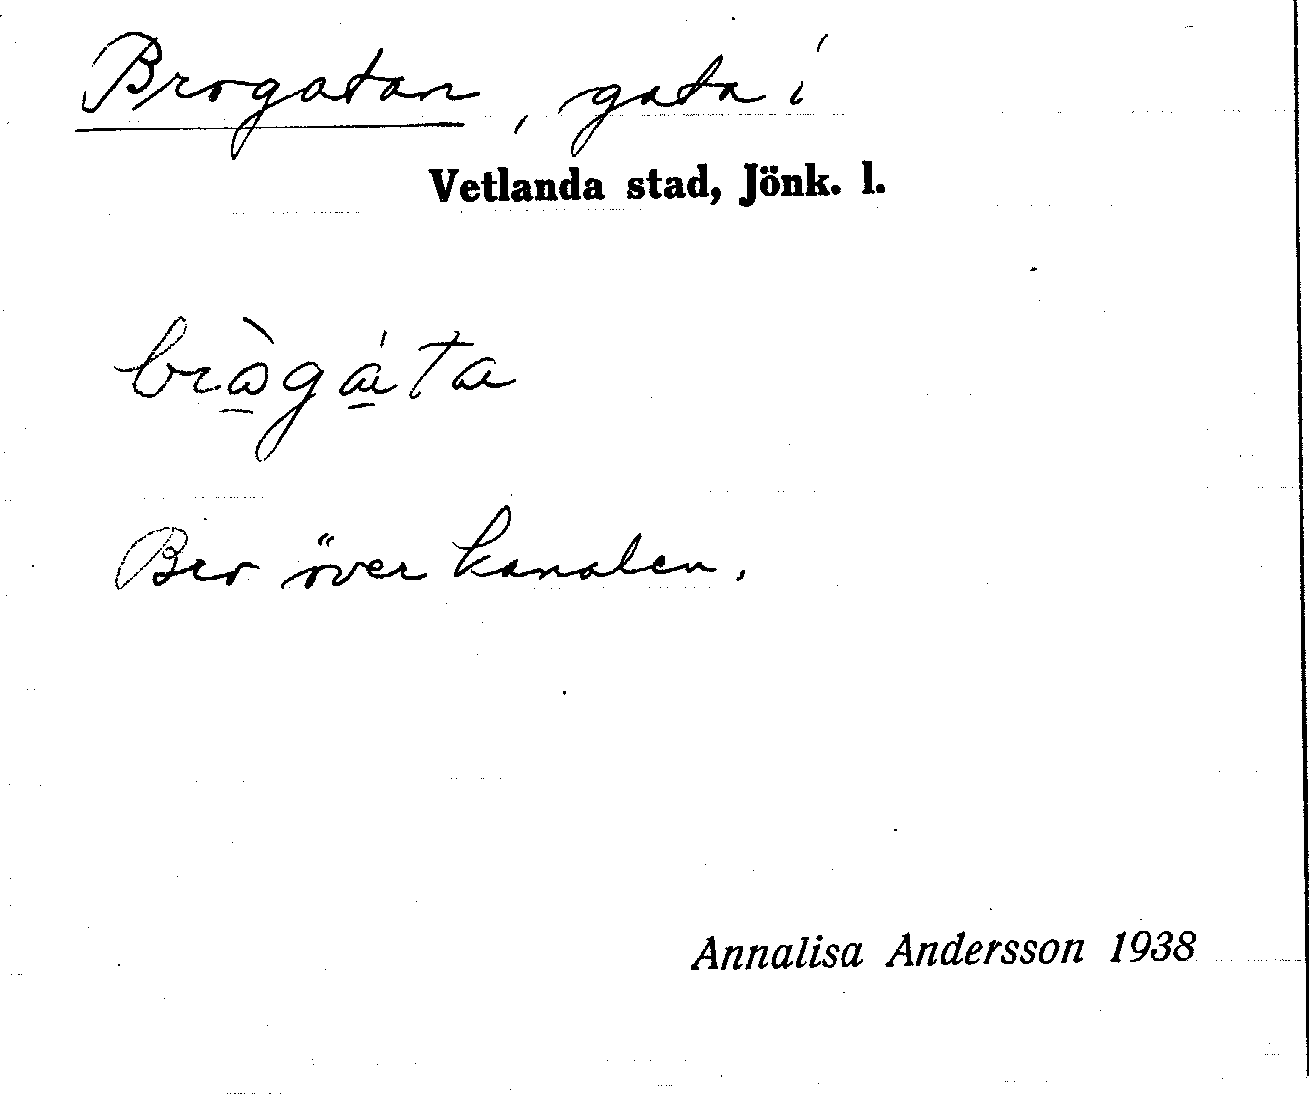 Brogatan, gata i
Vetlanda stad, Jönk. l.
brògáta
Bro över kanalen.
Annalisa Andersson 1938